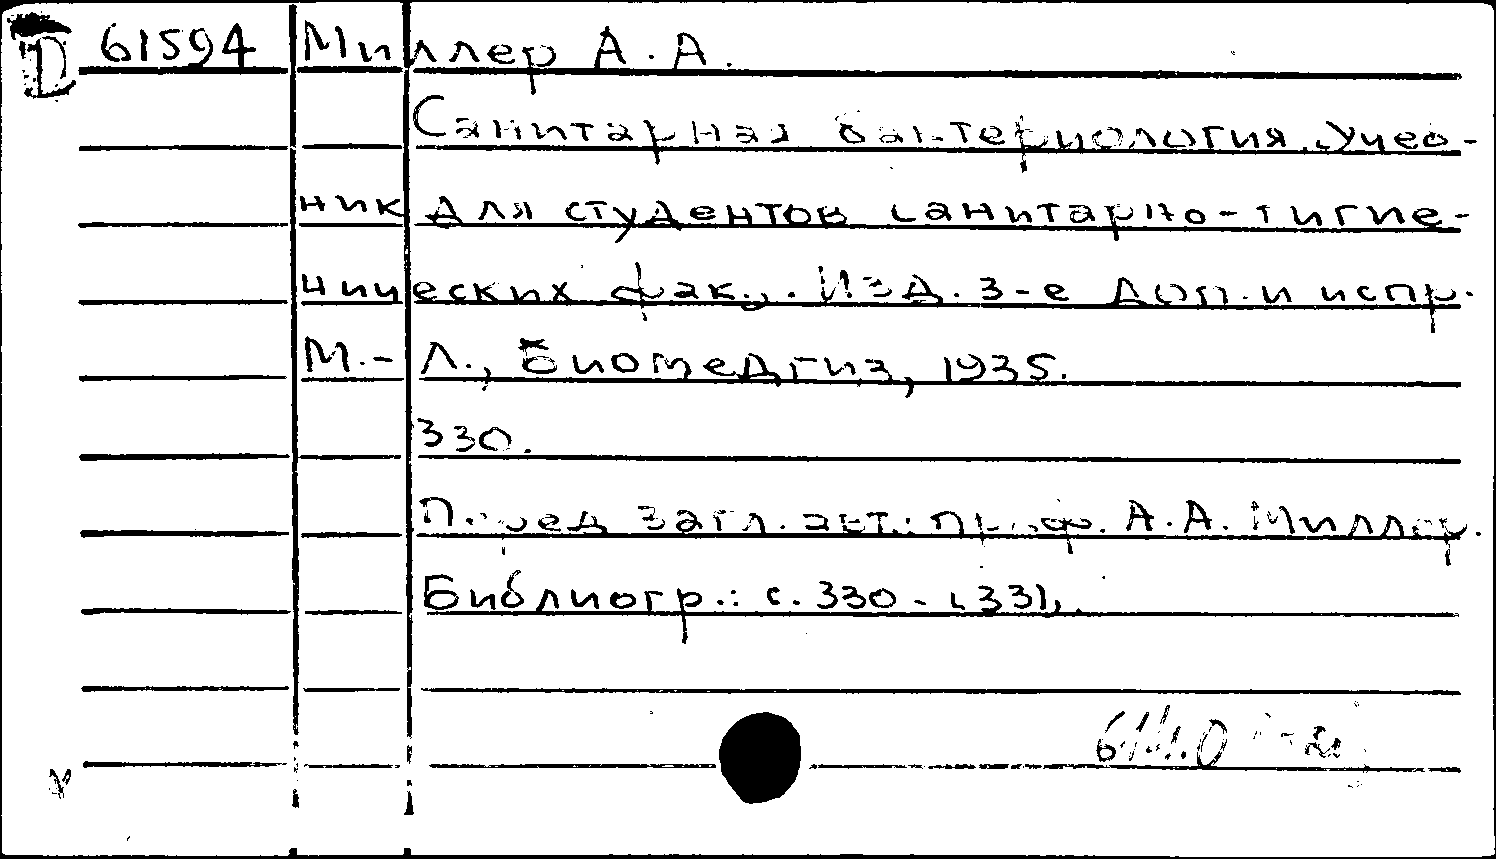 D 61594 Миллер А.А.
Санитарная бактериология. Учеб-
ник для студентов санитарно-гигие-
нических фак., . Изд. 3-е доп. и испр.
М.-Л., Биомедгиз, 1935.
330.
Перед загл. авт.: проф. А.А. Миллер.
Библиогр.: с. 330-[331].